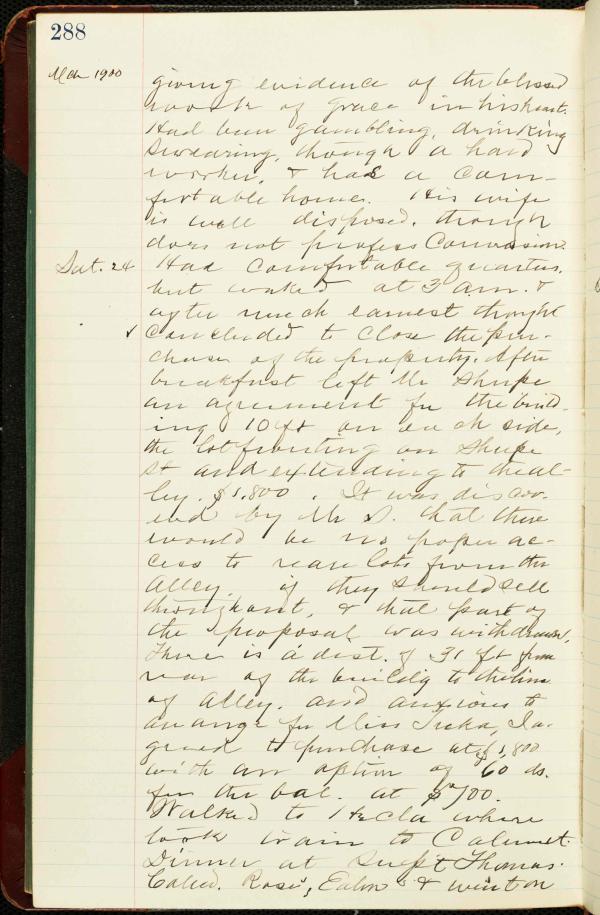 288
Mch 1900
giving evidence of the blessed
work of grace in his heart.
Had been gambling, drinking
swearing, though a hard
worker, & has a com-
fortable home. His wife
is well disposed, though
does not profess Conversion.
Sat. 24 Had comfortable quarters,
but waked at 3 a.m. &
after much earnest thought
concluded to close the pur-
chase of the property. After
breakfast left Mr Shupe
an agreement for the build-
ing 10 ft on each side,
the lot fronting on Shupe
St and extending to the al-
ley. $1,800. It was discov-
ered by Mr S. that there
would be no proper ac-
cess to rear lots from the
Alley, if they should sell
throughout, & that part of
the proposal was withdrawn.
There is a dist. of 31 ft from
rear of the building to the line
of Alley. and anxious to
arrange for Miss I a-
greed to purchase at $1,800
with an option of 60 ds.
for the bal. at $700.
Walked to Hecla where
took train to Calumet.
Dinner at Supt Thomas.
Called. Rosie, & went on